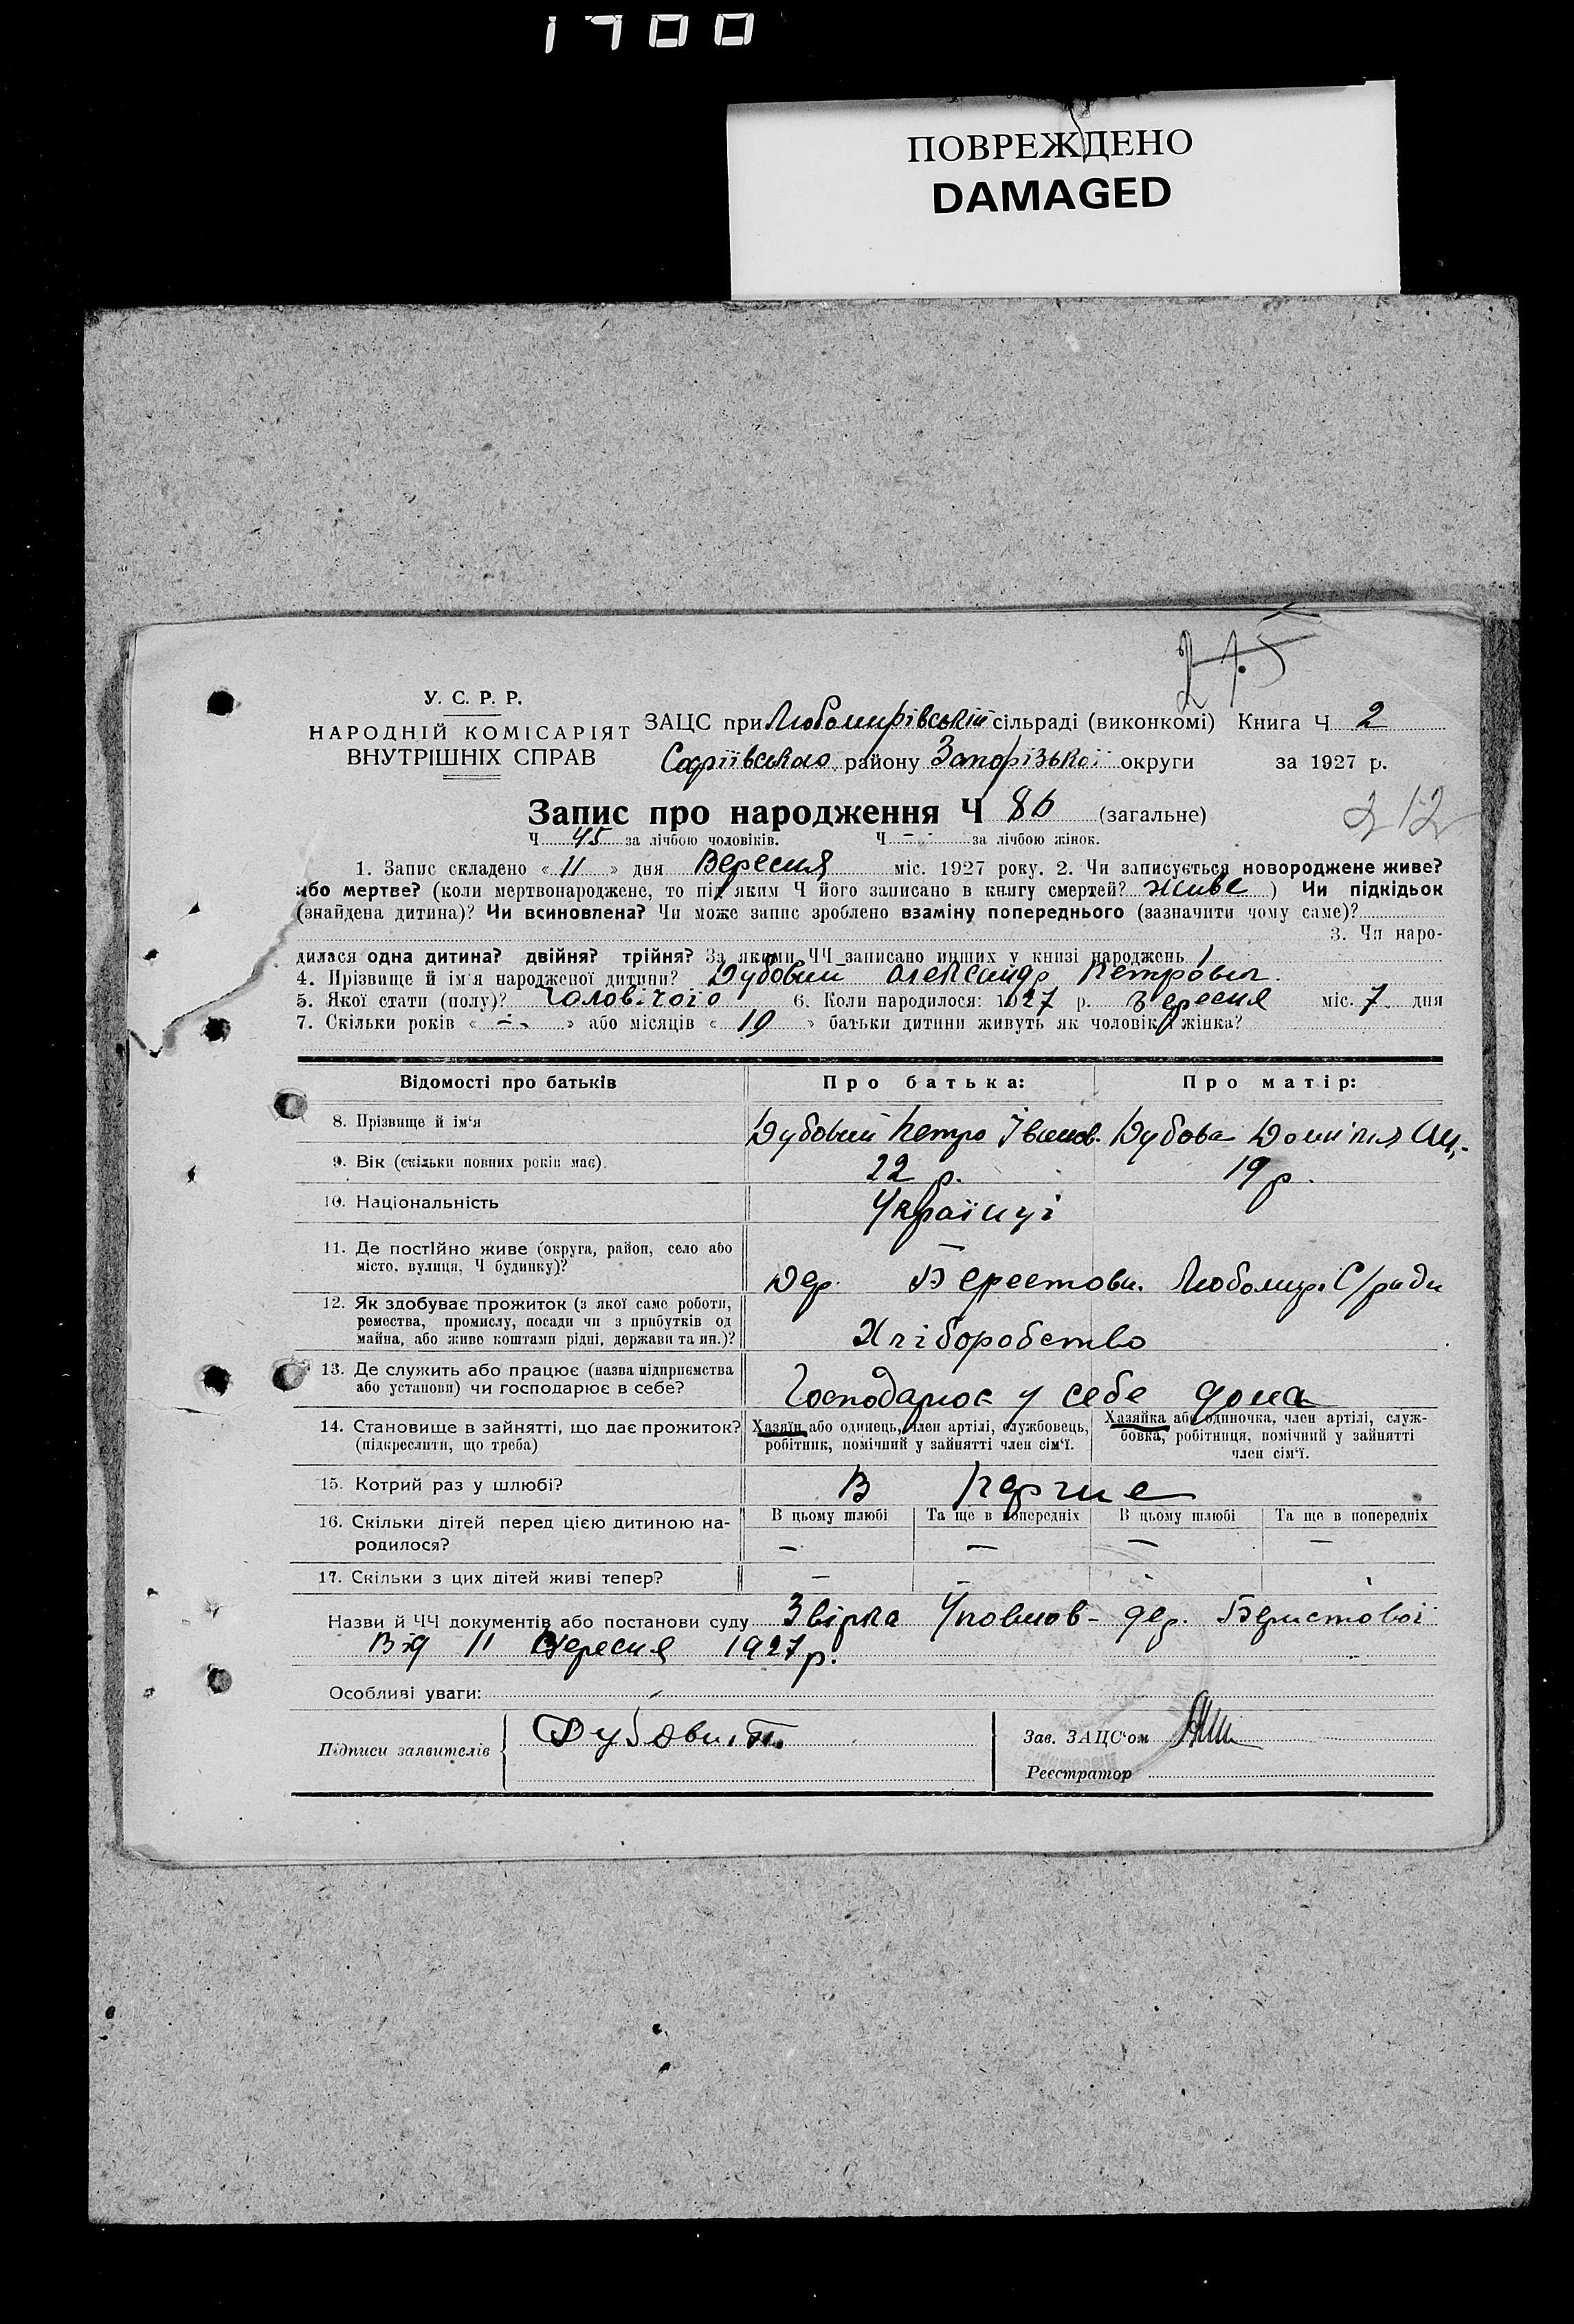 1700
ПОВРЕЖДЕНО
DAMAGED
275
У. С. Р. Р.
НАРОДНІЙ КОМІСАРІЯТ
ВНУТРІШНІХ СПРАВ
ЗАЦС при Любомирівській сільраді (виконкомі) Книга Ч 2
Софіївського району Запорізької округи за 1927 р.
Запис про народження Ч 86 (загальне)
212
Ч 45 за лічбою чоловіків. Ч — за лічбою жінок.
1. Запис складено « 11 » дня Вересня міс. 1927 року. 2. Чи записується новороджене живе?
або мертве? (коли мертвонароджене, то під яким Ч його записано в книгу смертей? живе ) Чи підкідьок
(знайдена дитина)? Чи всиновлена? Чи може запис зроблено взаміну попереднього (зазначити чому саме)?
3. Чи наро-
дилася одна дитина? двійня? трійня? За якими ЧЧ записано инших у книзі народжень 1
4. Прізвище й ім'я народженої дитини? Дубовий Олександр Петрович.
5. Якої стати (полу)? Чоловічого 6. Коли народилося: 1927 р. Вересня міс. 7 дня
7. Скільки років « — » або місяців « 10 » батьки дитини живуть як чоловік й жінка?
Відомості про батьків Про батька: Про матір:
8. Прізвище й ім'я Дубовий Петро Іванов. Дубова
9. Вік (скільки повних років має). 22 р. 19 р.
10. Національність Українці
11. Де постІйно живе (округа, район, село або
місто, вулиця, Ч будинку)? Дер. Берестови. Любомир. С/ради
12. Як здобуває прожиток (з якої саме роботи,
ремества, промислу, посади чи з прибутків од
майна, або живе коштами рідні, держави та ин.)? Хліборобство
13. Де служить або працює (назва підприємства
або установи) чи господарює в себе? Господарює у себе дома
14. Становище в зайнятті, що дає прожиток?
(підкреслити, що треба)
Хазяїн або одинець, член артілі, службовець,
робітник, помічний у зайнятті член сім'ї.
Хазяйка або одиночка, член артілі, служ-
бовка, робітниця, помічний у зайнятті
член сім'ї.
15. Котрий раз у шлюбі? В перше
16. Скільки дітей перед цією дитиною на-
родилося?
В цьому шлюбі Та ще в попередніх В цьому шлюбі Та ще в попередніх
— — — —
17. Скільки з цих дітей живі тепер? — — -
Назви й ЧЧ документів або постанови суду Звірка Уповнов- дер. Беристової
Від 11 Вересня 1927 р.
Особливі уваги:
Підписи заявителів Дубови. П.
Зав. ЗАЦС'ом
Реєстратор